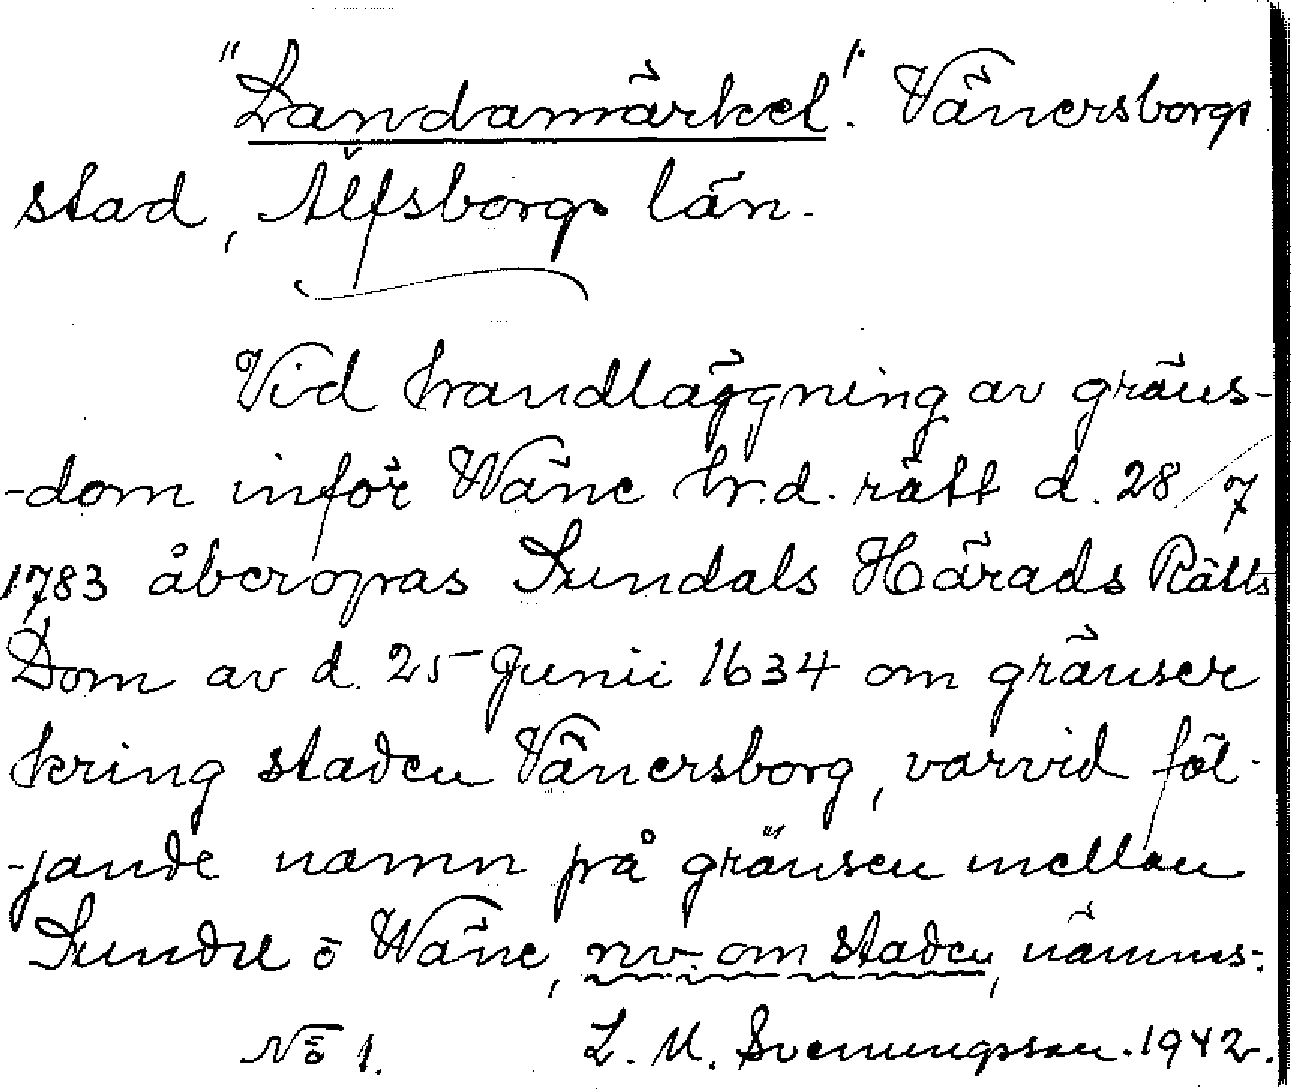 "Landamärkel". Vänersborgs
stad, Älfsborgs län.
Vid handläggning av gräns-
-dom inför Wäne hr.d. rätt d. 28/7
1783 åberopas Sundals Härads Rätts
Dom av d. 25 Junii 1634 om gränser
kring staden Vänersborg, varvid föl-
-jande namn på gränsen mellan
Sundel o Wäne, nv. om staden, nämns:
No 1. L. M. Svenungsson. 1942.